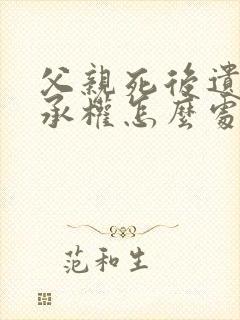 父親死後遺
承權怎麼處
范和生